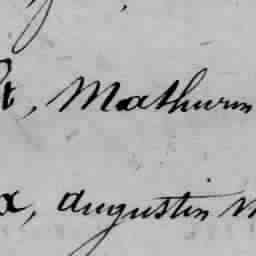 , Mathurin
x, augustin